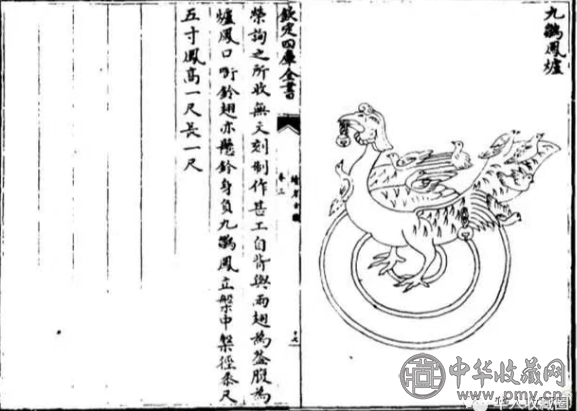 九鶵鳳爐
欽定四庫全書
續考古圖
卷三
榮詢之所收無文刻制作甚工自背與兩翅為蓋腹為
爐鳳口啣鈴翅亦懸鈴身負九鶵鳳立槃中槃徑黍尺
五寸鳳高一尺長一尺
中华收藏网
www.pmv.cn